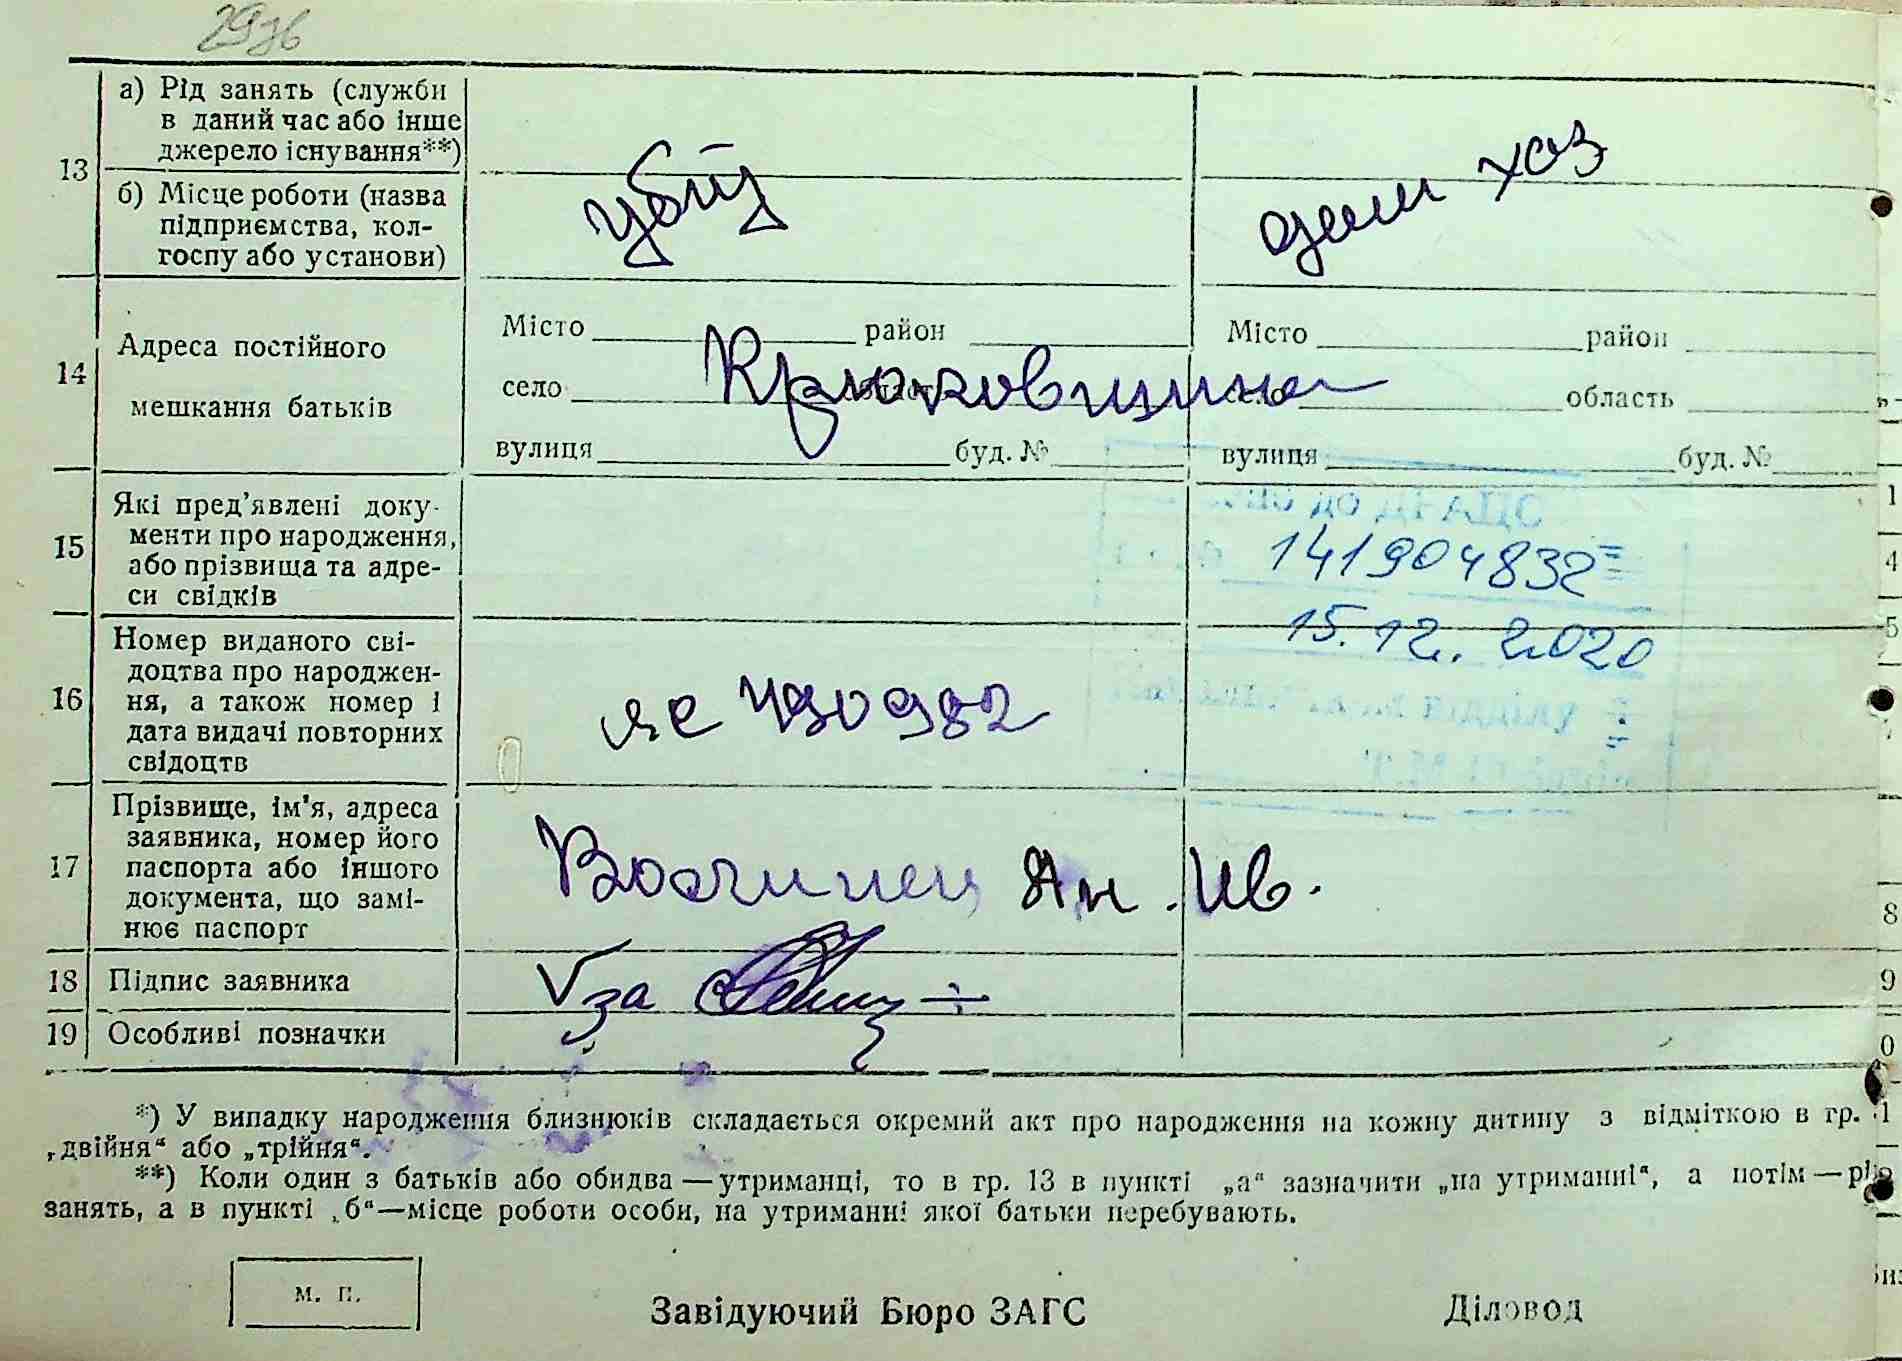 13
а) Рід занять (служби
в даний час або інше
джерело існування**)
б) Місце роботи (назва
підприємства, кол-
госпу або установи)
убит
дом хоз
14
Адреса постійного
мешкання батьків
Місто район
село
вулиця буд. №
Крюковщина
Місто район
область
вулиця буд. №
15
Які пред’явлені доку-
менти про народження,
або прізвища та адре-
си свідків
141904832
15.12.2020
16
Номер виданого сві-
доцтва про народжен-
ня, а також номер і
дата видачі повторних
свідоцтв
ЯС 490982
17
Прізвище, ім’я, адреса
заявника, номер його
паспорта або іншого
документа, що замі-
нює паспорт
Ян. Ив.
18 Підпис заявника
за
19 Особливі позначки
*) У випадку народження близнюків складається окремий акт про народження на кожну дитину з відміткою в гр.
„двійня“ або „трійня“.
**) Коли один з батьків або обидва — утриманці, то в гр. 13 в пункті „а“ зазначити „на утриманні“, а потім — рід
занять, а в пункті „б“—місце роботи особи, на утриманні якої батьки перебувають.
м. п.
Завідуючий Бюро ЗАГС
Діловод